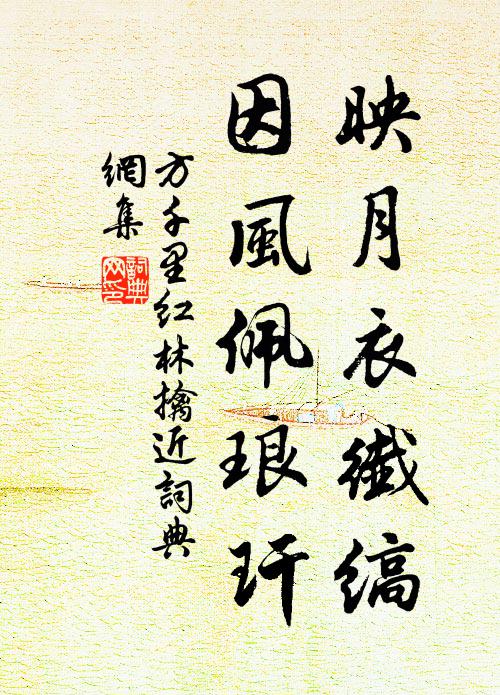 映月衣纖縞
因風佩琅玕
方千里紅林擒近詞典
網集
詞典
网印